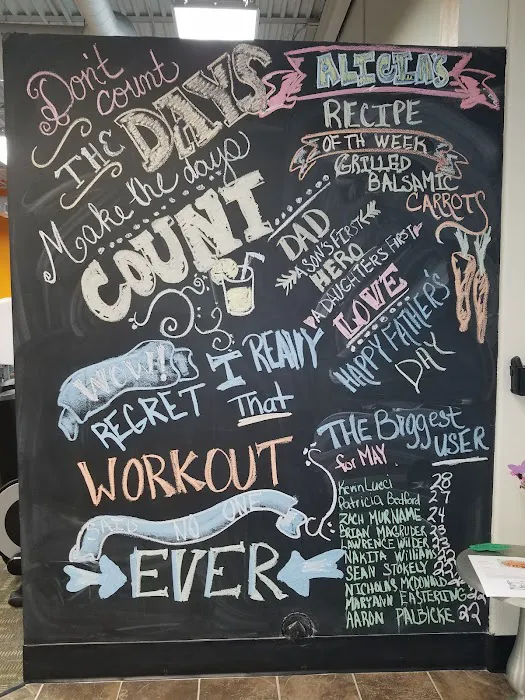 Don't
count
THE DAYS
Make the days
COUNT
WOW!! I REALLY
REGRET That
WORKOUT
SAID NO ONE
EVER
ALICIA'S
RECIPE
OF TH WEEK
GRILLED
BALSAMIC
CARROTS
DAD
A SON'S FIRST
HERO
A DAUGHTERS FIRST
LOVE
HAPPY FATHER'S
DAY
THE Biggest
USER
for MAY
Kevin Lucci 28
Patricia Bedford 27
ZACH MURNAME 24
BRIAN MAGRUDER 23
LAWRENCE WILDER 23
NAKITA WILLIAMS 22
SEAN STOKELY 22
NICHOLAS MCDONALD
MARYANN EASTERLING 22
AARON PALBICKE 22